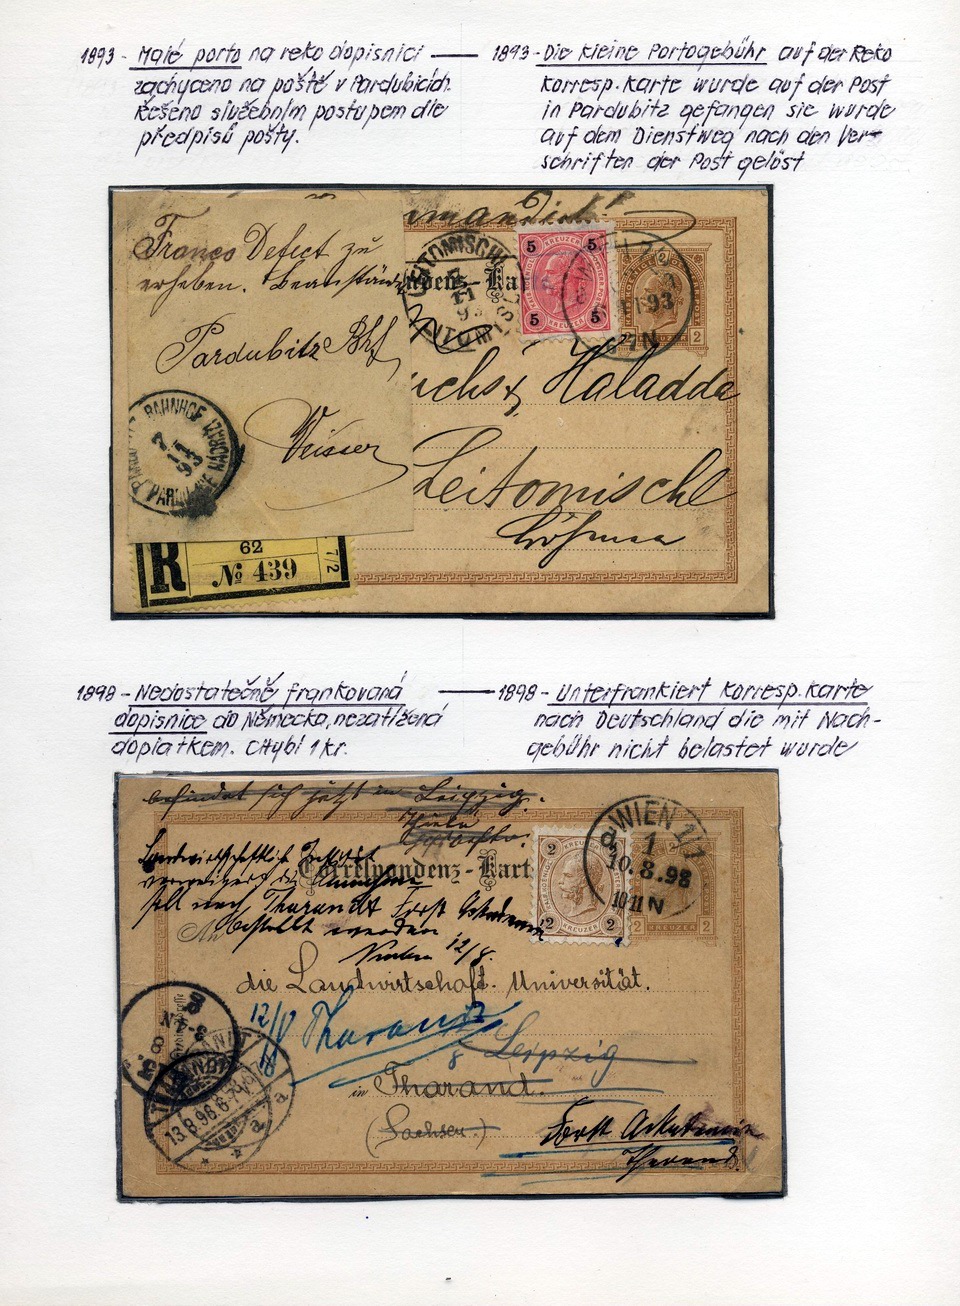 1893 - Malé porto na reko dopisnici
zachyceno na poště v Pardubicích.
Řešeno služebním postupem dle
předpisů pošty.
1893 - Die kleine Portogebühr auf der Reko
Korresp. Karte wurde auf der Post
in Pardubitz gefangen sie wurde
auf dem Dienstweg nach den Ver-
schriften der Post gelöst
Franco Defect zu
erheben. Beanständ
Pardubitz Bhf
BAHNHOF
7
11
93
R
62
No 439
7/2
LEITOMISCHL
11
5 KREUZER 5
5 5
93
7 N
2 KREUZER 2
Haladda
Leitomischl
Böhmen
1898 - Nedostatečně frankovaná
dopisnice do Německa, nezatížená
doplatkem. Chybí 1 kr.
1898 - Unterfrankiert Korresp. Karte
nach Deutschland die mit Nach-
gebühr nicht belastet wurde
befindet sich jetzt in Leipzig.
Correspondenz-Karte
soll nach Tharandt Forst
bestellt werden
12/8.
2 2
2 KREUZER 2
WIEN 1/1
1
10.8.98
10-11 N
2 KREUZER 2
An
die Landwirtschaft. Universität.
12/V Tharandt
Leipzig
in Tharand.
(Sachsen.)
THARANDT
13.8.98.6-7V
a a
* *
Forst Akademie
Tharand.